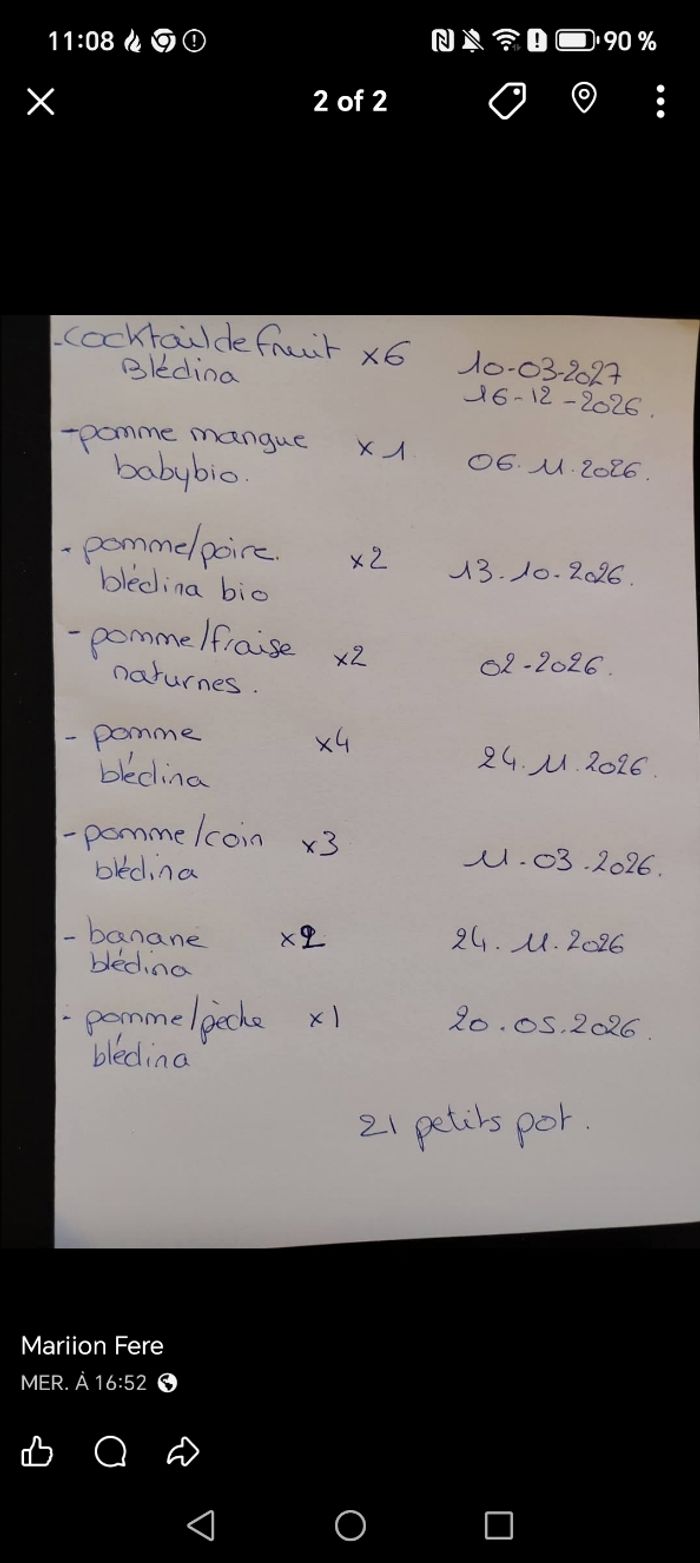 11:08
90 %
2 of 2
-cocktail de fruit x6 10-03-2027
Blédina 16-12-2026.
-pomme mangue x1. 06.11.2026.
babybio.
- pomme/poire. x2 13.10.2026.
blédina bio
- pomme/fraise x2 02-2026.
naturnes.
- pomme x4 24.11.2026.
blédina
- pomme/coin x3 11.03.2026.
blédina
- banane x2 24.11.2026
blédina
- pomme/pèche x1 20.05.2026.
blédina
21 petits pot.
Mariion Fere
MER. À 16:52